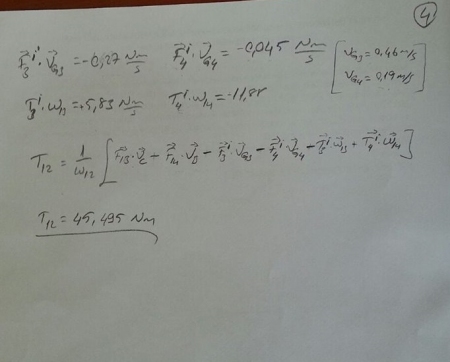 4
F₃ⁱ · V_G3 = -0,27 Nm/s F₄ⁱ · V_G4 = -0,045 Nm/s [V_G3 = 0,46 m/s
V_G4 = 0,19 m/s]
T₃ⁱ · ω₁₃ = -5,83 Nm/s T₄ⁱ · ω₁₄ = -11,88
T₁₂ = 1/ω₁₂ [F₁₃ · V_C + F₁₄ · V_B - F₃ⁱ · V_G3 - F₄ⁱ · V_G4 - T₃ⁱ · ω₁₃ + T₄ⁱ · ω₁₄]
T₁₂ = 45,495 Nm